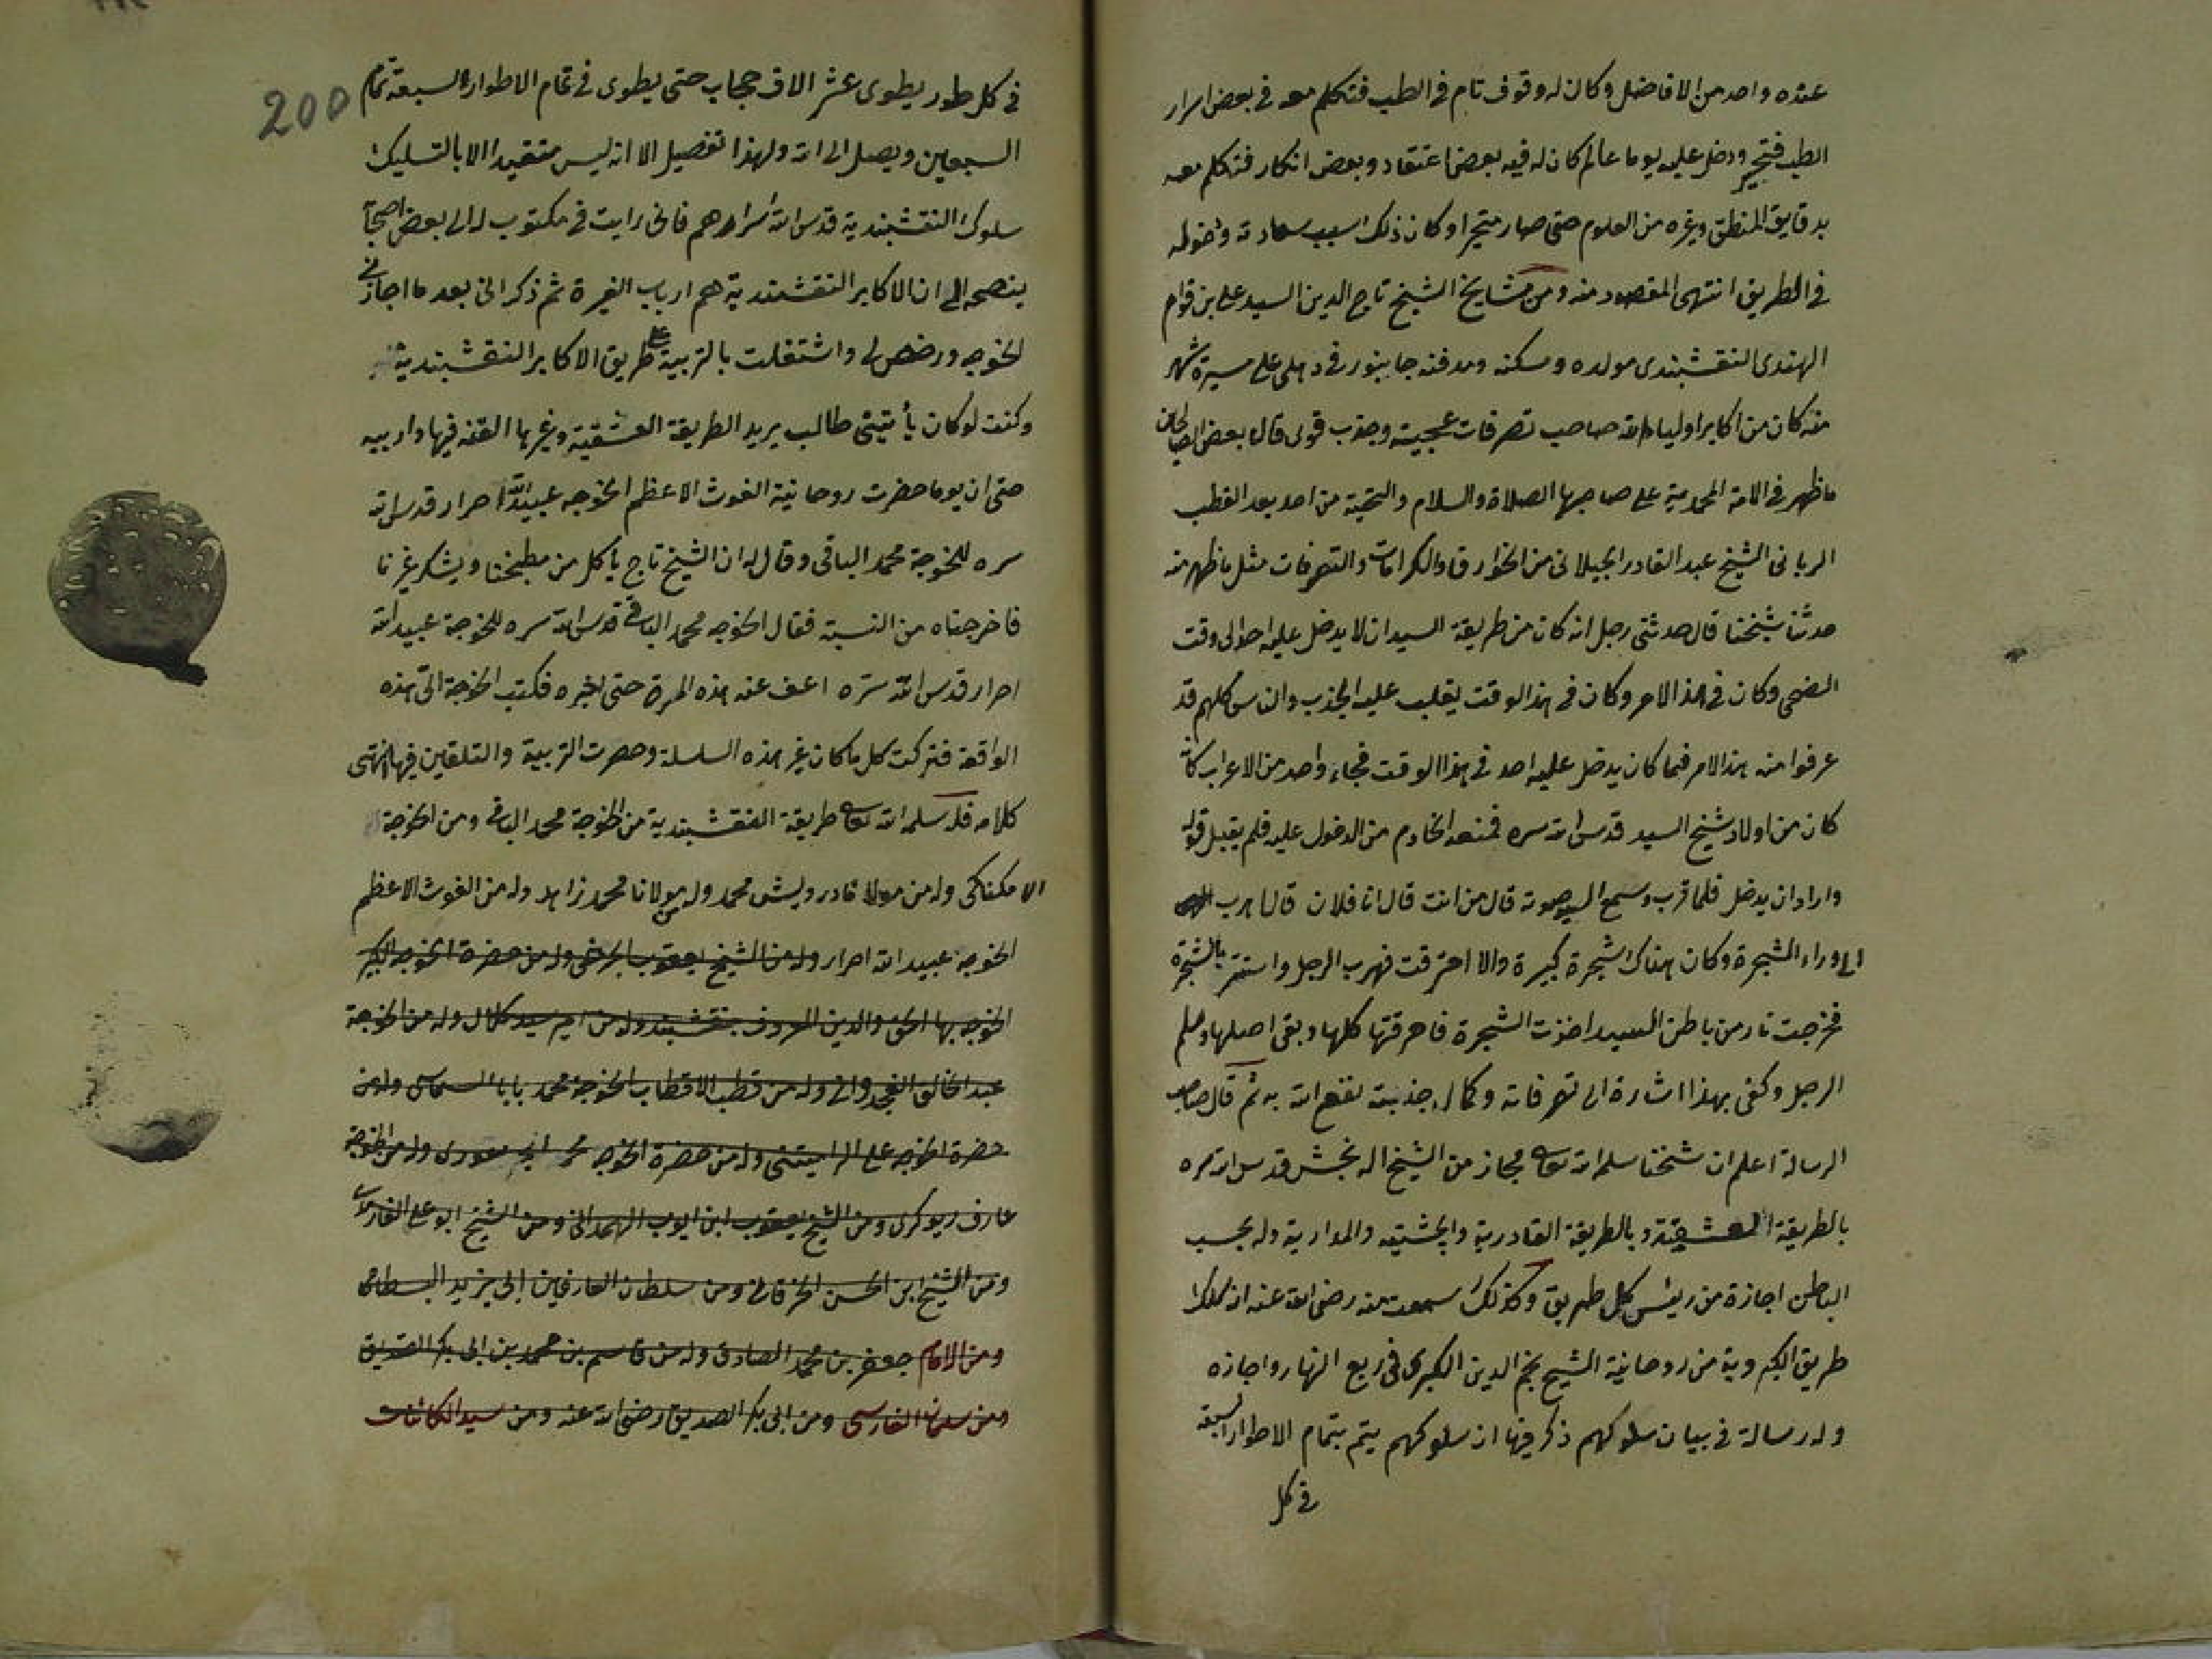 عنده واحد من الافاضل وكان له وقوف تام فى الطب فتكلم معه فى بعض اسرار
الطب فتحير ودخل عليه يوما عالم كان له فيه بعض اعتقاد وبعض انكار فتكلم معه
بدقايق المنطق وغيره من العلوم حتى صار متحيرا وكان ذلك سبب سعادته ودخوله
فى الطريق انتهى المقصود منه ومن مشايخ الشيخ تاج الدين السيد على بن قوام
الهندى النقشبندى مولده ومسكنه ومدفنه جابنور فى دهلى على مسيرة شهر
منه كان من اكابر اولياء الله صاحب تصرفات عجيبة وجذب قوى قال بعض الصالحين
ما ظهر فى الامة المحمدية على صاحبها الصلاة والسلام والتحية من احد بعد القطب
الربانى الشيخ عبد القادر الجيلانى من الخوارق والكرامات والتصرفات مثل ما ظهر منه
حدثنا شيخنا قال حدثنى رجل انه كان من طريقة السيد ان لا يدخل عليه احد الى وقت
الضحى وكان فى هذا الامر وكان فى هذا الوقت يغلب عليه الجذب والناس كلهم قد
عرفوا منه هذا الامر فما كان يدخل عليه احد فى هذا الوقت فجاء واحد من الاعراب
كان من اولاد شيخ السيد قدس الله سره فمنعه الخادم من الدخول عليه فلم يقبل قوله
واراد ان يدخل فلما قرب وسمع السيد صوته قال من انت قال انا فلان قال اهرب
الى وراء الشجرة وكان هناك شجرة كبيرة والا احترقت فهرب الرجل واستتر بالشجرة
فخرجت نار من باطن السيد اخذت الشجرة فاحرقتها كلها وبقى اصلها وسلم
الرجل وكفى بهذا اشارة الى تصرفاته وكمال جذبته نفع الله به ثم قال صاحب
الرسالة اعلم ان شيخنا سلمه الله تعالى مجاز من الشيخ اله بخش قدس الله سره
بالطريقة العشقية وبالطريقة القادرية والجشتيه والمدارية وله بحسب
الباطن اجازة من رئيس كل طريق وكذلك سمعت منه رضى الله عنه انه سلك
طريق الكبروية من روحانية الشيخ نجم الدين الكبرى فى ربع النهار واجازه
وله رسالة فى بيان سلوكهم ذكر فيها ان سلوكهم يتم بتمام الاطوار السبعة
فى كل
200
فى كل طور يطوى عشر الاف حجاب حتى يطوى فى تمام الاطوار السبعة تمام
السبعين ويصل الى الله ولهذا تفصيل الا انه ليس متقيدا الا بالتسليك
سلوك النقشبندية قدس الله اسرارهم فانى رايت فى مكتوب له الى بعض اصحابه
ينصحه الى ان الاكابر النقشبندية هم ارباب الغيرة ثم ذكر انى بعد ما اجازنى
الخوجه ورخص لى واشتغلت بالتربية على طريق الاكابر النقشبندية
وكنت لو كان يأتينى طالب يريد الطريقة العشقية وغيرها القنه فيها واربيه
حتى ان يوما حضرت روحانية الغوث الاعظم الخوجه عبيد الله احرار قدس الله
سره للخوجة محمد الباقى وقال له ان الشيخ تاج ياكل من مطبخنا ويشكر غيرنا
فاخرجناه من النسبة فقال الخوجه محمد الباقى قدس الله سره للخوجة عبيد الله
احرار قدس الله سره اعف عنه هذه المرة حتى اخبره فكتب الخوجة الى هذه
الواقعة فتركت كل ما كان غير هذه السلسلة وحصرت التربية والتلقين فيها انتهى
كلامه فله سلمه الله تعالى طريقة النقشبندية من الخوجة محمد الباقى ومن الخوجة
الامكنكى وله من مولانا درويش محمد وله من مولانا محمد زاهد وله من الغوث الاعظم
الخوجة عبيد الله احرار وله من الشيخ يعقوب الجرخى وله من حضرة الخوجه الكبير
الخوجه بها الحق والدين المعروف بنقشبند وله من امير سيد كلال وله من الخوجة
عبد الخالق الغجدوانى وله من قطب الاقطاب الخوجة محمد بابا السماسى وله من
حضرة الخوجه على الراميتنى وله من حضرة الخوجه وله من الخوجة
عارف ريوكرى ومن الشيخ يعقوب ابن ايوب الهمدانى ومن الشيخ ابو على الفارمدى
ومن الشيخ ابن الحسن الخرقانى ومن سلطان العارفين ابى يزيد البسطامى
ومن الامام جعفر بن محمد الصادق وله من قاسم بن محمد بن ابى بكر الصديق
ومن سلمان الفارسى ومن ابى بكر الصديق رضى الله عنه ومن سيد الكائنات